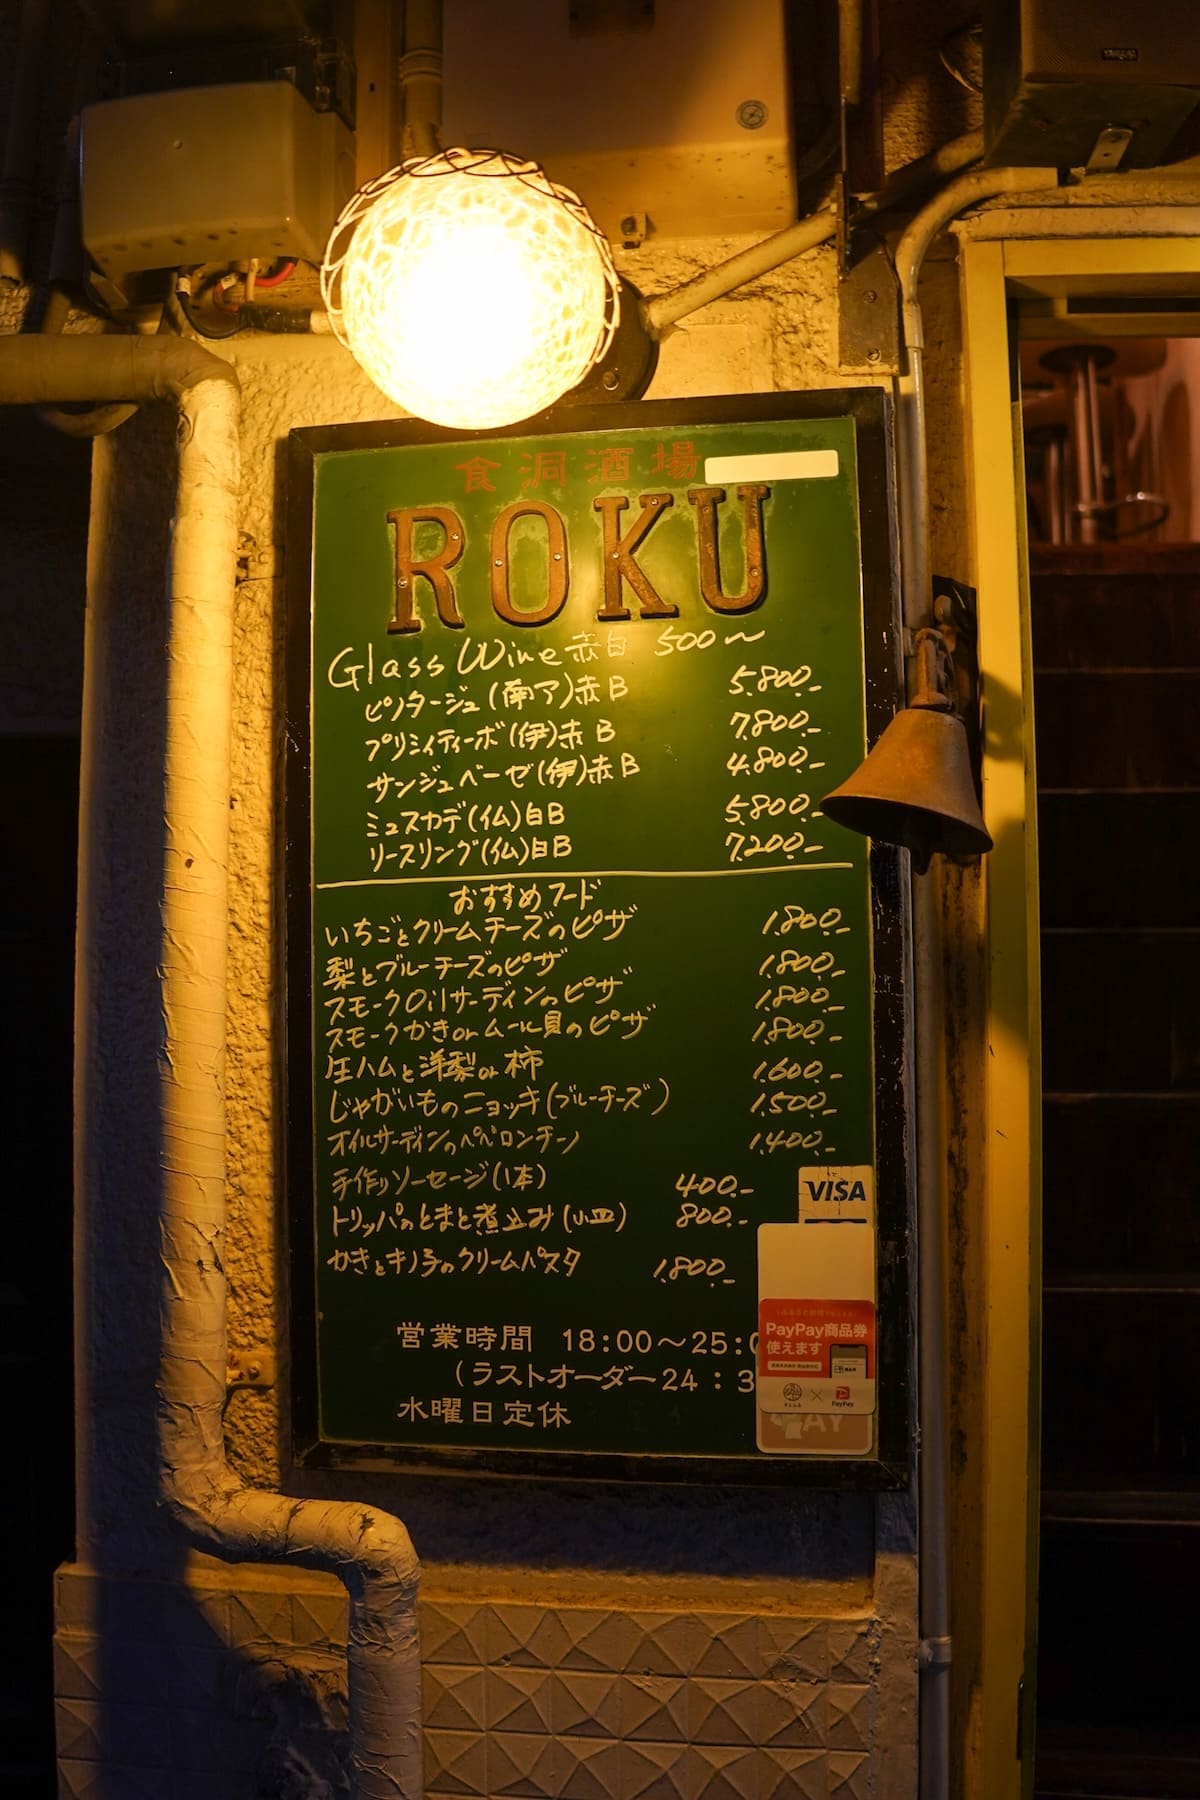 食洞酒場
ROKU
Glass Wine 赤白 500〜
ピノタージュ(南ア)赤B 5.800.-
プリミィティーボ(伊)赤B 7.800.-
サンジュベーゼ(伊)赤B 4.800.-
ミュスカデ(仏)白B 5.800.-
リースリング(仏)白B 7.200.-
おすすめフード
いちごとクリームチーズのピザ 1.800.-
梨とブルーチーズのピザ 1.800.-
スモークOilサーディンのピザ 1.800.-
スモークかきorムール貝のピザ 1.800.-
生ハムと洋梨or柿 1.600.-
じゃがいものニョッキ(ブルーチーズ) 1.500.-
オイルサーディンのペペロンチーノ 1.400.-
手作りソーセージ(1本) 400.-
トリッパのとまと煮込み(小皿) 800.-
かきとキノ子のクリームパスタ 1.800.-
VISA
営業時間 18:00〜25:0
(ラストオーダー24:3
水曜日定休
PayPay商品券
使えます
× PayPay
PAY
YAMAHA